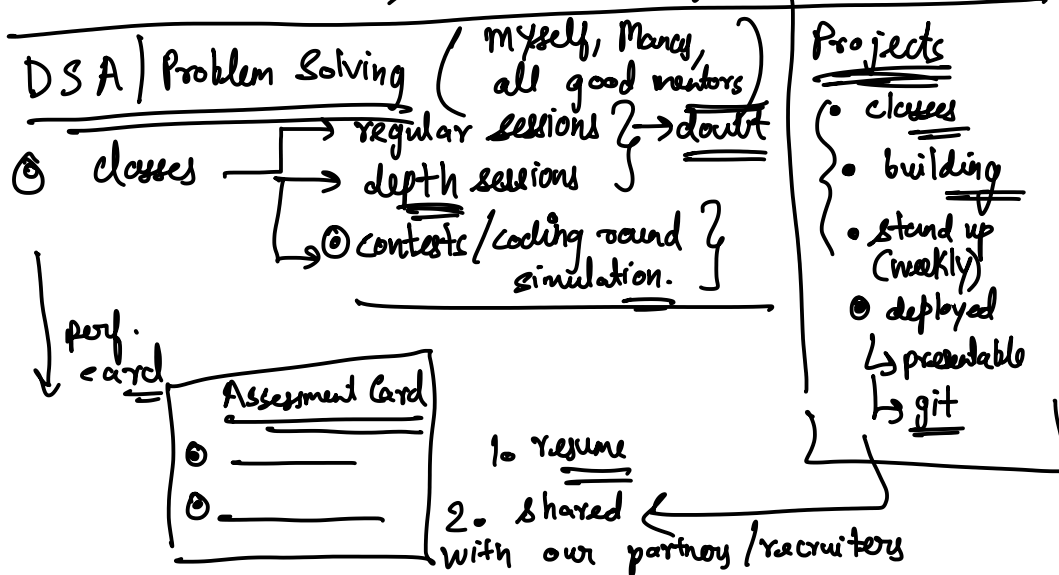 DSA | Problem Solving (myself, Mancy,
all good mentors)
classes → regular sessions } → doubt
→ depth sessions
→ contests / coding round
simulation.
perf.
card
Assessment Card
1. resume
2. shared
with our partners / recruiters
Projects
• classes
• building
• stand up
(weekly)
deployed
↳ presentable
↳ git